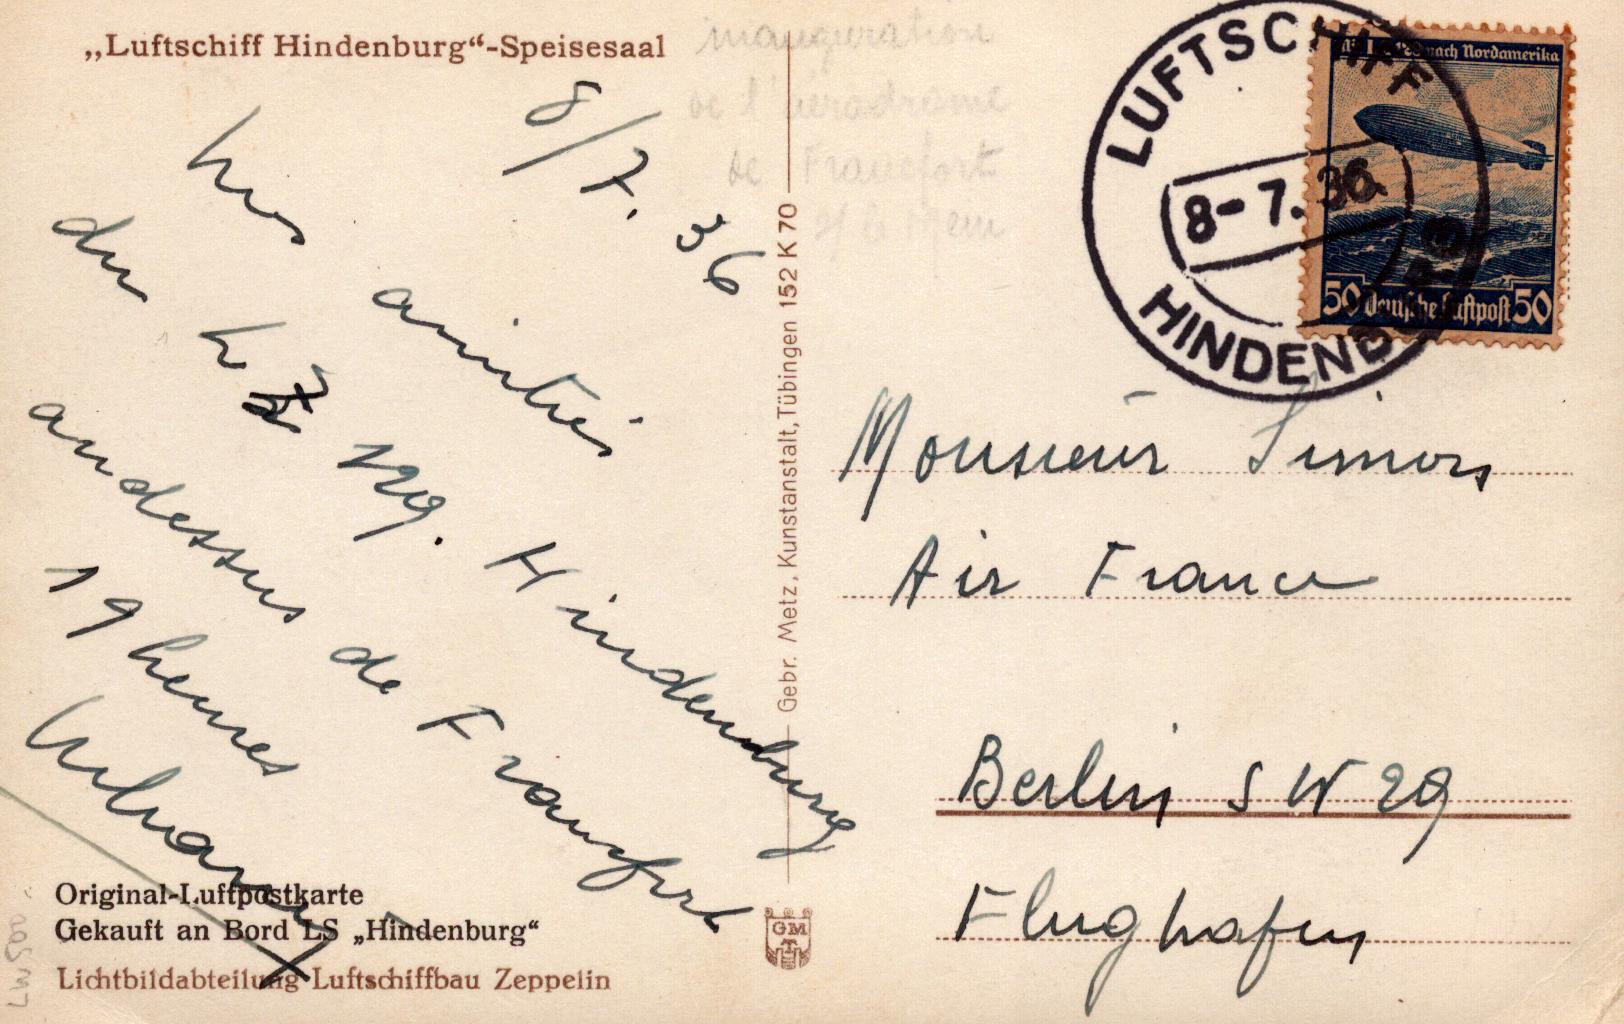 „Luftschiff Hindenburg“-Speisesaal
inauguration
de l'aerodrome
de Francfort
s/ le Mein
8/7. 36
nos amitiés
du LZ 129. Hindenburg
audessus de Francfort
19 heures
LUFTSCHIFF
8-7.36
HINDENBURG
nach Nordamerika
50 Deutsche Luftpost 50
Monsieur Simon
Air France
Berlin SW 29
Flughafen
Gebr. Metz, Kunstanstalt, Tübingen 152 K 70
Original-Luftpostkarte
Gekauft an Bord LS „Hindenburg“
Lichtbildabteilung Luftschiffbau Zeppelin
GM
T